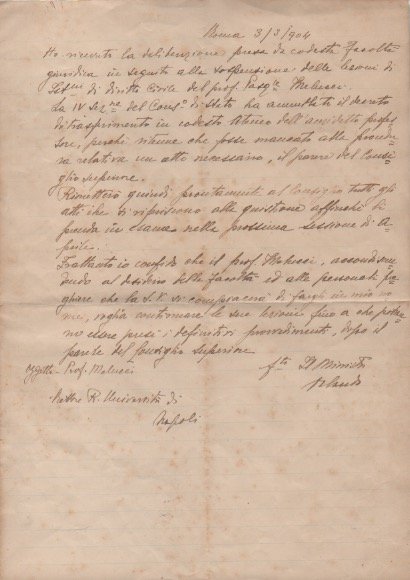 Roma 3/3/904
Ho ricevuto la deliberazione presa da codesta Facoltà
giuridica in seguito alla sospensione delle lezioni di
di diritto Civile del prof. Melucci.
La IV Sez.ne del Cons° di Stato ha annullato il decreto
di trasferimento in codesto Ateneo dell'anzidetto profes=
sore, perchè ritenne che fosse mancato alla procedu=
ra relativa un atto necessario, il parere del Consi=
glio superiore.
Rimetterò quindi prontamente al Consiglio tutti gli
atti che si riferiscono alla quistione affinchè li
prenda in esame nella prossima sessione di A=
prile.
Frattanto io confido che il prof. Melucci, accondiscen=
dendo al desiderio della Facoltà ed alle personali pre=
ghiere che la S.V. si compiacerà di fargli in mio no=
me, voglia continuare le sue lezioni fino a che potran=
no essere presi i definitivi provvedimenti, dopo il
parere del Consiglio Superiore
fto Il Ministro
Orlando
Oggetto Prof. Melucci
Rettore R. Università di
Napoli